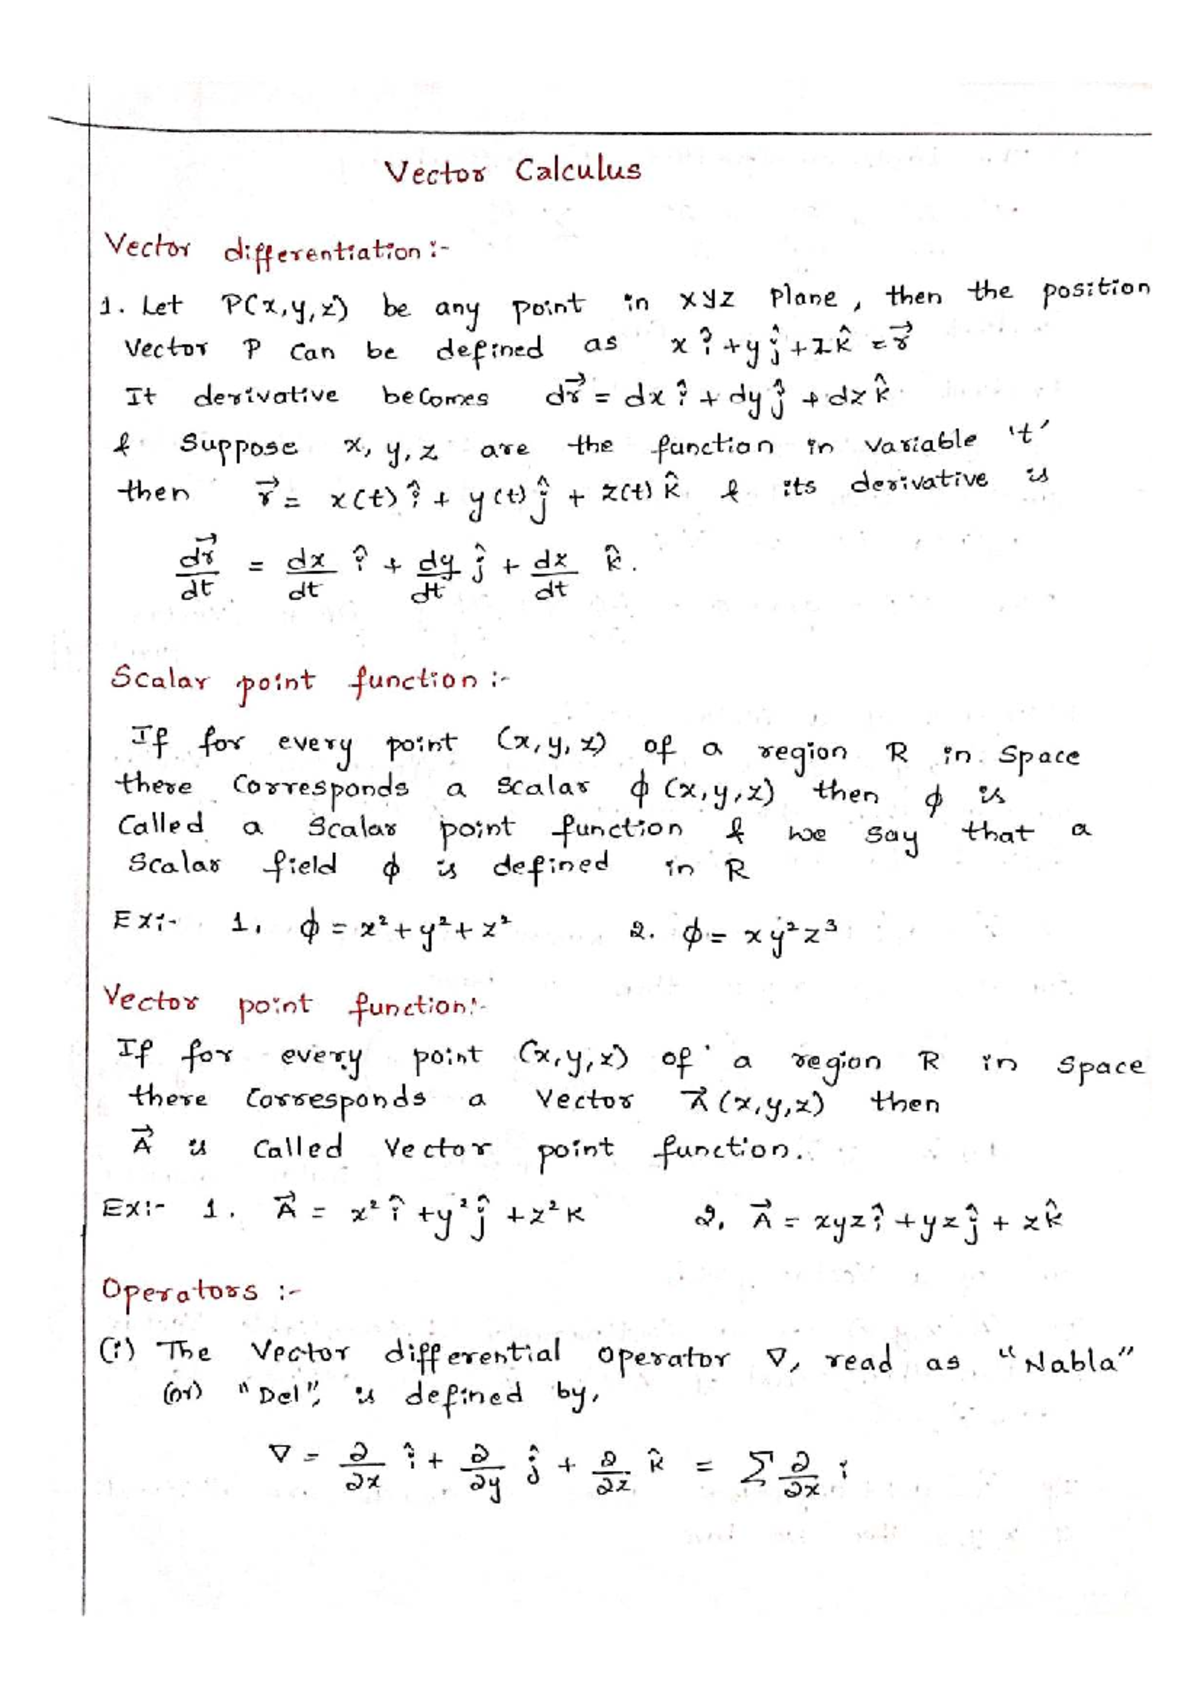 Vector Calculus
Vector differentiation :-
1. Let P(x,y,z) be any point in xyz plane, then the position
Vector P can be defined as x î + y ĵ + z k̂ = r⃗
It derivative becomes dr⃗ = dx î + dy ĵ + dz k̂.
& Suppose x, y, z are the function in variable 't'
then r⃗ = x(t) î + y(t) ĵ + z(t) k̂ & its derivative is
dr⃗/dt = dx/dt î + dy/dt ĵ + dz/dt k̂.
Scalar point function :-
If for every point (x, y, z) of a region R in space
there Corresponds a scalar ϕ (x,y,z) then ϕ is
Called a Scalar point function & we say that a
Scalar field ϕ is defined in R
Ex:- 1. ϕ = x² + y² + z² 2. ϕ = xy²z³
Vector point function:-
If for every point (x,y,z) of a region R in space
there Corresponds a Vector A⃗ (x,y,z) then
A⃗ is Called Vector point function.
Ex:- 1. A⃗ = x² î + y² ĵ + z² k 2. A⃗ = xyz î + yz ĵ + z k̂
Operators :-
(i) The Vector differential operator ∇, read as "Nabla"
(or) "Del", is defined by,
∇ = ∂/∂x î + ∂/∂y ĵ + ∂/∂z k̂ = Σ ∂/∂x i